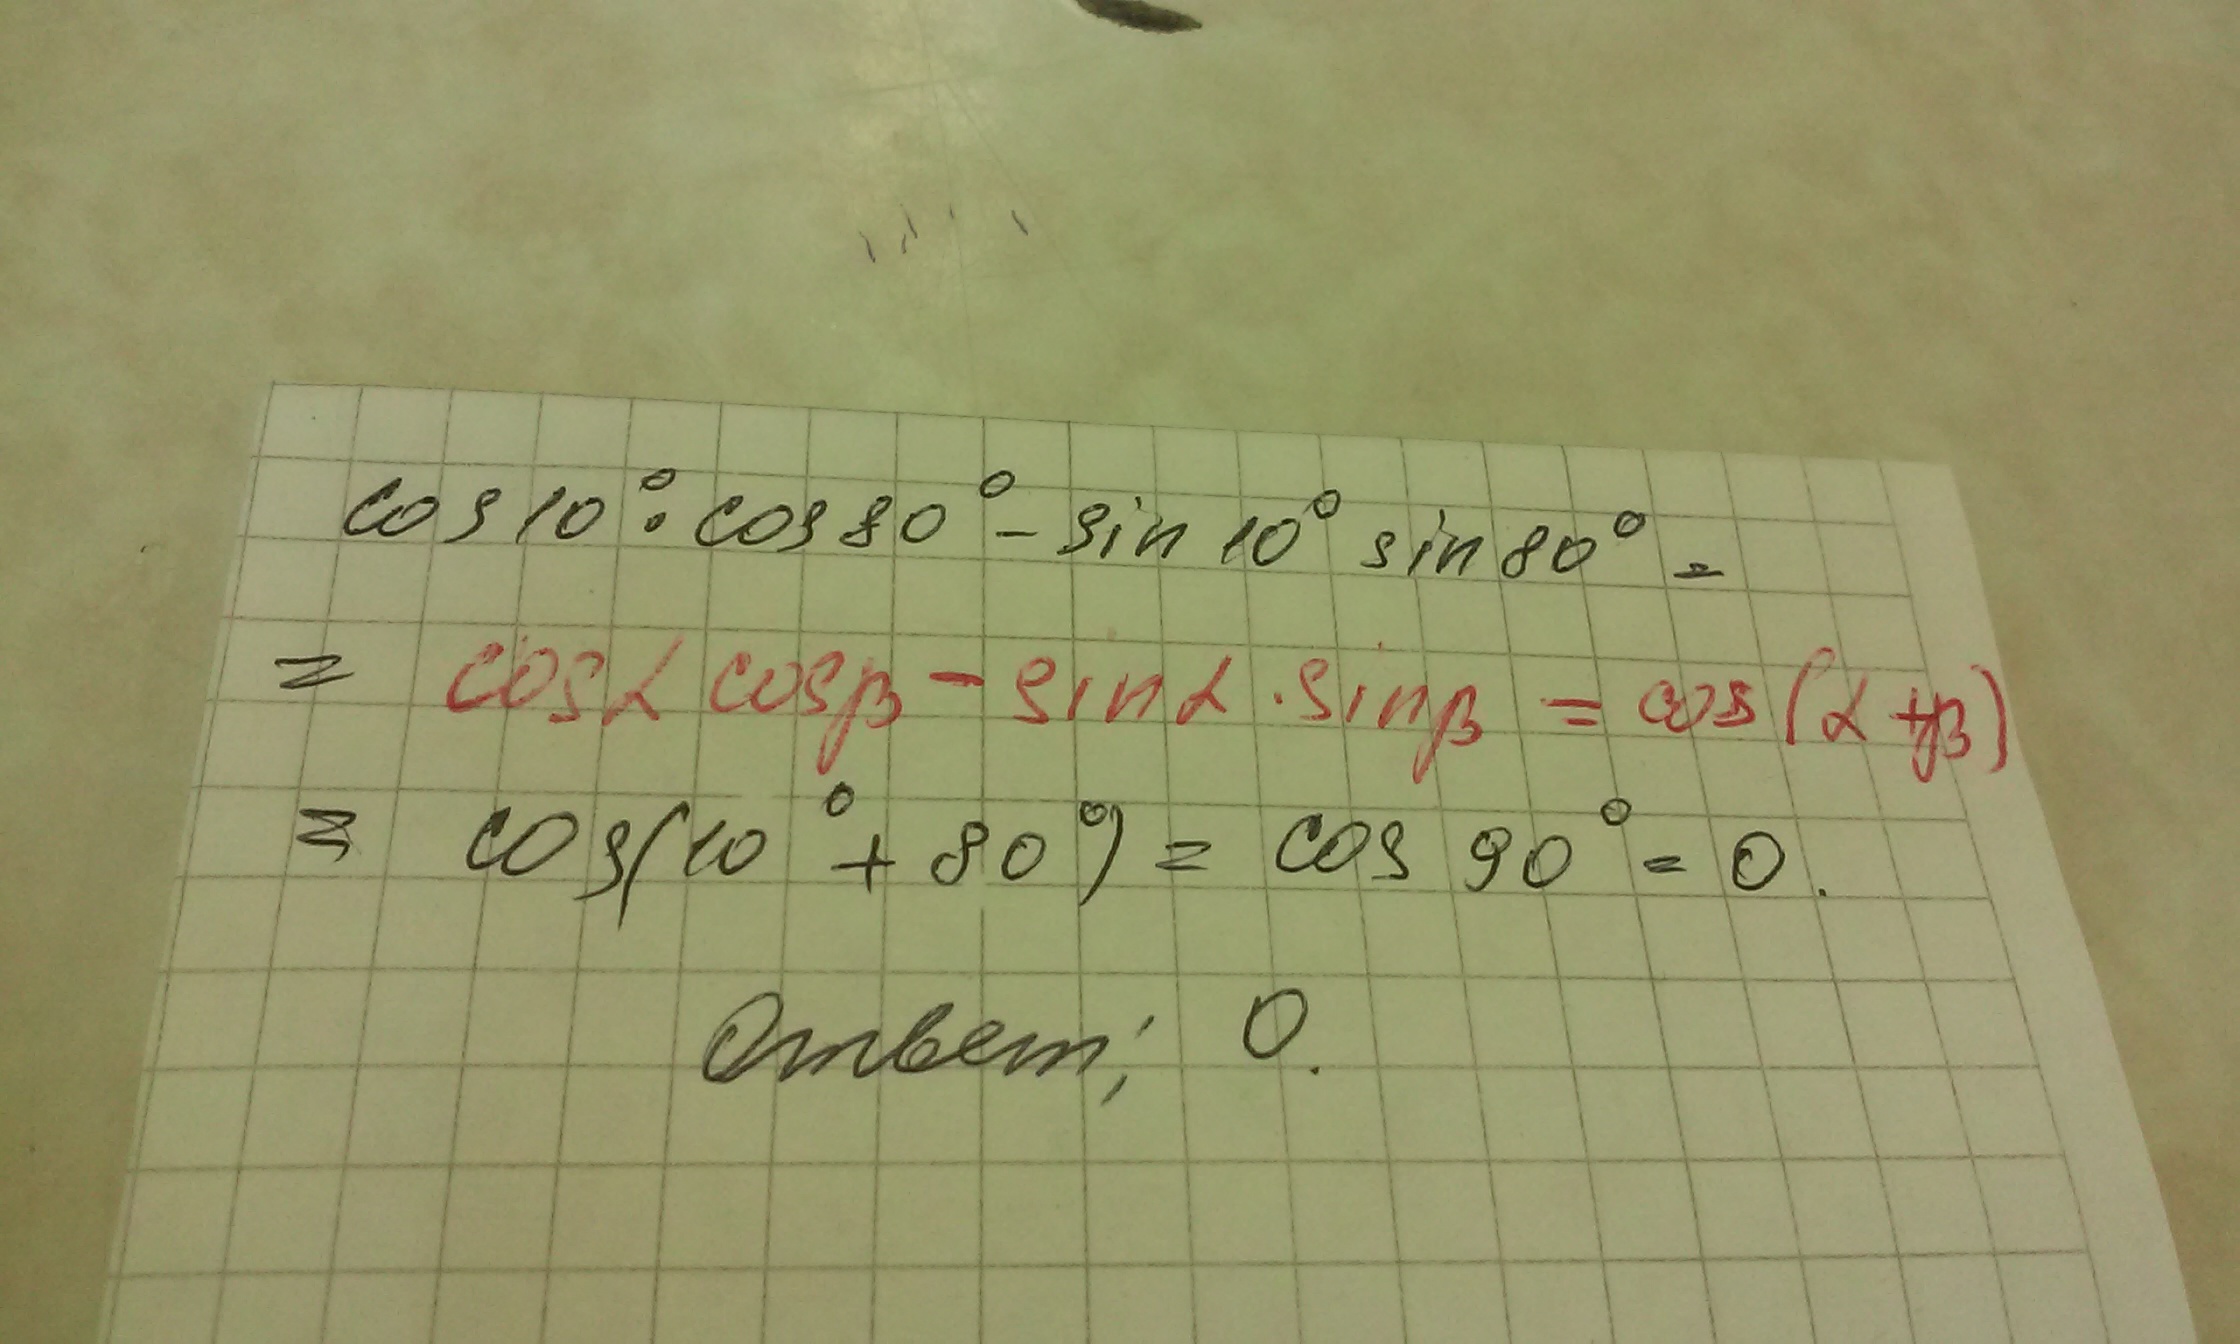 cos 10° · cos 80° - sin 10° sin 80° =
= cosα cosβ - sinα · sinβ = cos(α + β)
= cos(10° + 80°) = cos 90° = 0.
Ответ; 0.